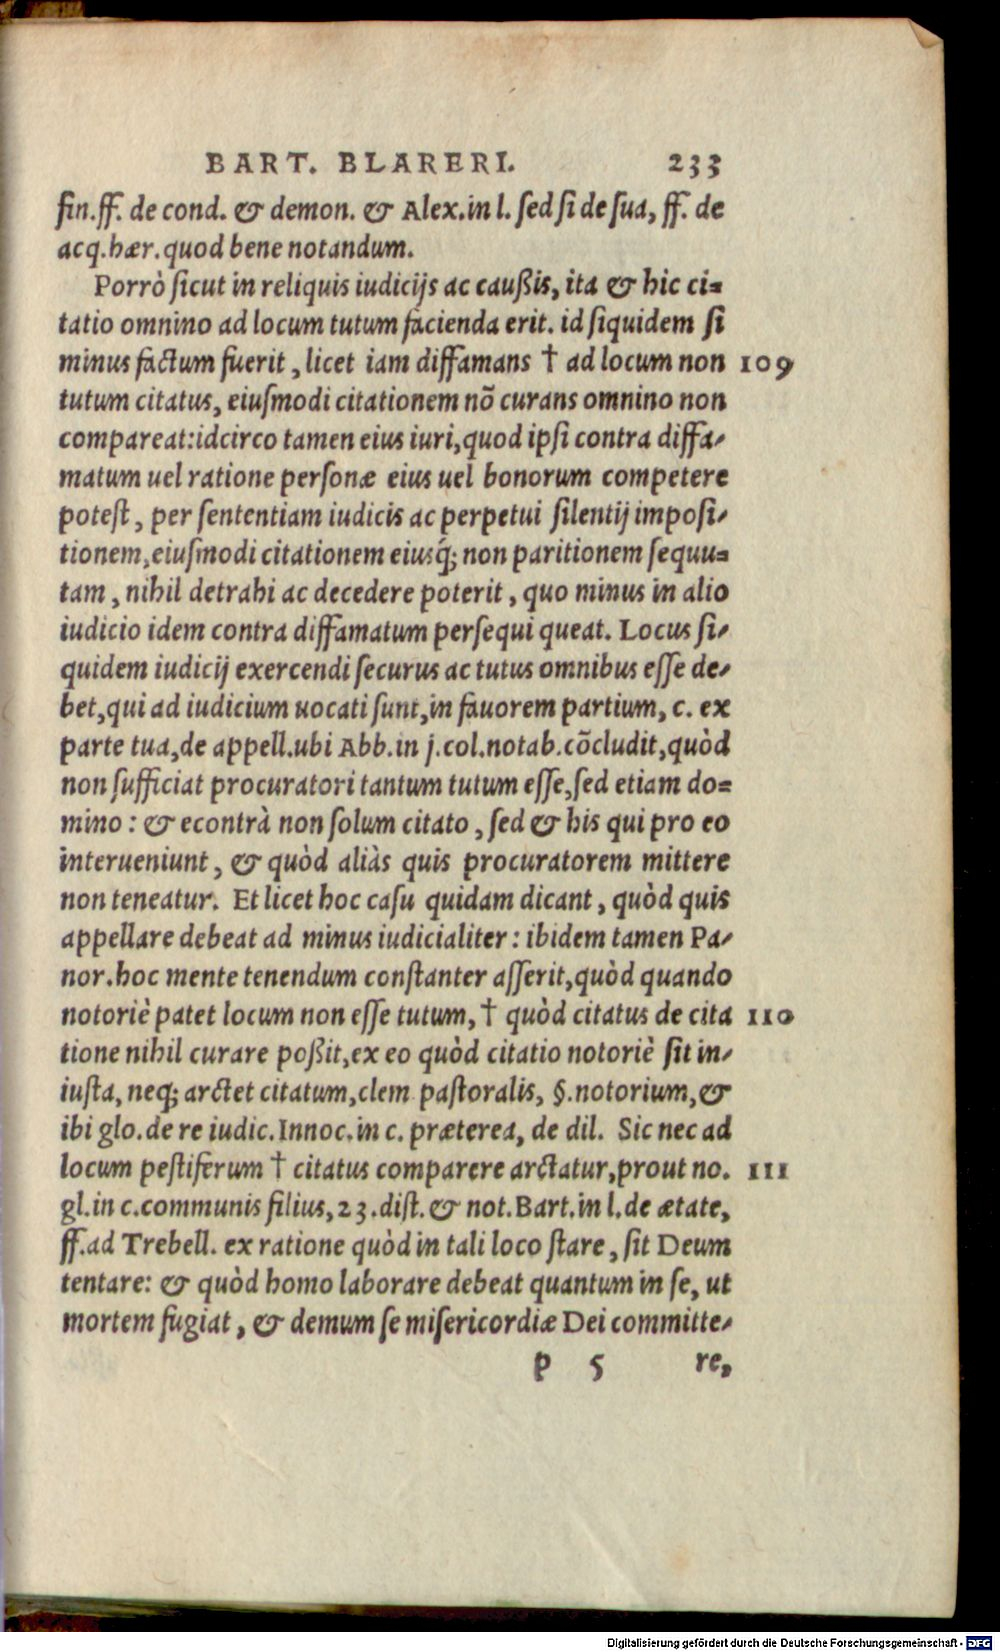 BART. BLARERI. 233
fin.ff. de cond. & demon. & Alex.in l. ſed ſi de ſua, ff. de
acq.hær.quod bene notandum.
Porrò ſicut in reliquis iudicijs ac caußis, ita & hic ci=
tatio omnino ad locum tutum facienda erit. id ſiquidem ſi
minus factum fuerit, licet iam diffamans † ad locum non 109
tutum citatus, eiuſmodi citationem nõ curans omnino non
compareat:idcirco tamen eius iuri,quod ipſi contra diffa-
matum uel ratione perſonæ eius uel bonorum competere
poteſt, per ſententiam iudicis ac perpetui ſilentij impoſi-
tionem,eiuſmodi citationem eiusq́; non paritionem ſequu=
tam, nihil detrahi ac decedere poterit, quo minus in alio
iudicio idem contra diffamatum perſequi queat. Locus ſi-
quidem iudicij exercendi ſecurus ac tutus omnibus eſſe de-
bet,qui ad iudicium uocati ſunt,in fauorem partium, c. ex
parte tua,de appell.ubi Abb.in j.col.notab.cõcludit,quòd
non ſufficiat procuratori tantum tutum eſſe,ſed etiam do=
mino: & econtrà non ſolum citato, ſed & his qui pro eo
interueniunt, & quòd aliàs quis procuratorem mittere
non teneatur. Et licet hoc caſu quidam dicant, quòd quis
appellare debeat ad minus iudicialiter: ibidem tamen Pa-
nor.hoc mente tenendum conſtanter aſſerit,quòd quando
notoriè patet locum non eſſe tutum, † quòd citatus de cita 110
tione nihil curare poßit,ex eo quòd citatio notoriè ſit in-
iuſta, neq; arctet citatum,clem paſtoralis, §.notorium,&
ibi glo.de re iudic.Innoc.in c. præterea, de dil. Sic nec ad
locum peſtiferum † citatus comparere arctatur,prout no. 111
gl.in c.communis filius,23.diſt.& not.Bart.in l.de ætate,
ff.ad Trebell. ex ratione quòd in tali loco ſtare, ſit Deum
tentare: & quòd homo laborare debeat quantum in ſe, ut
mortem fugiat, & demum ſe miſericordiæ Dei committe-
p 5 re,
Digitalisierung gefördert durch die Deutsche Forschungsgemeinschaft - DFG